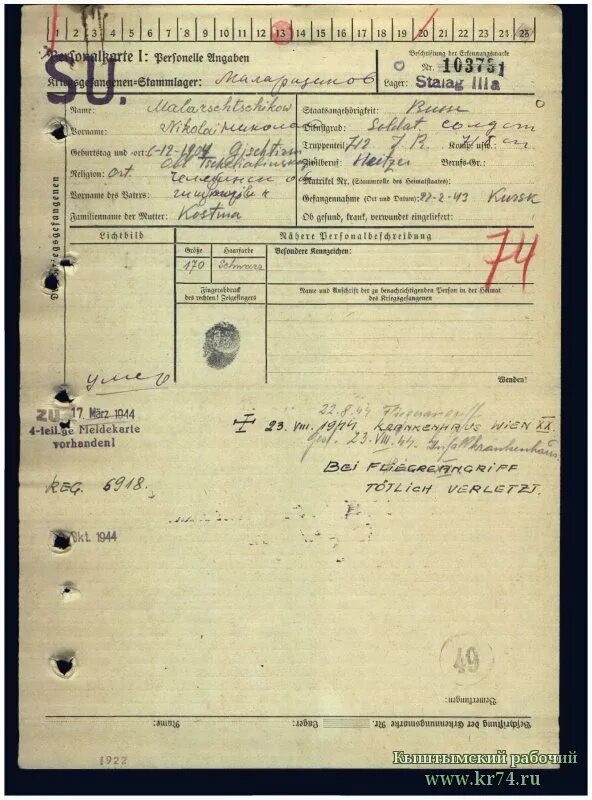 1 2 3 4 5 6 7 8 9 10 11 12 13 14 15 16 17 18 19 20 21 22 23 24 25
Personalkarte I: Personelle Angaben
Beschriftung der Erkennungsmarke
Nr. 103751
Kriegsgefangenen-Stammlager:
Lager: Stalag IIIa
SU.
Name: Malarschtschikow
Staatsangehörigkeit: Russe
Vorname: Nikolai
Dienstgrad: Soldat солдат
Truppenteil: 712 J.R. Komp. usw.:
Geburtstag und -ort:
Religion:
Zivilberuf: Heitzer Berufs-Gr.:
Matrikel Nr. (Stammrolle des Heimatstaates):
Vorname des Vaters:
Gefangennahme (Ort und Datum): 22-2-43 Kursk
Familienname der Mutter: Kostina
Ob gesund, krank, verwundet eingeliefert:
Lichtbild
Nähere Personalbeschreibung
74
Größe Haarfarbe Besondere Kennzeichen:
170 schwarz
Fingerabdruck
des rechten! Zeigefingers
Name und Anschrift der zu benachrichtigenden Person in der Heimat
des Kriegsgefangenen
умер
Wenden!
17. März 1944
22.8.44 Fliegerangriff
4-teilige Meldekarte
vorhanden!
23. VIII. 1944 KRANKENHAUS WIEN XX.
gest. 23.VIII.44. Unfallkrankenhaus
BEI FLIEGREANGRIFF
TÖTLICH VERLETZT.
REG. 6918.
Okt. 1944
49
Bemerkungen:
Beschriftung der Erkennungsmarke Nr. Lager: Name:
1922
Кыштымский рабочий
www.kr74.ru